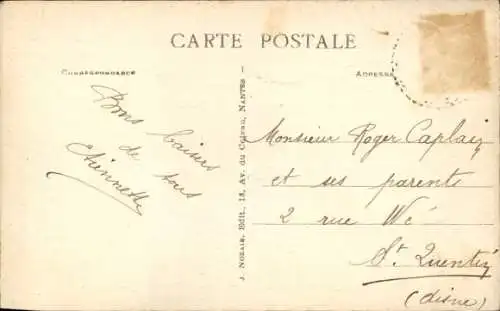 CARTE POSTALE
CORRESPONDANCE
ADRESSE
Bons baisers
de tous
J. NOZAIS, Edit., 13, Av. du Coteau, NANTES
Monsieur Roger Caplain
et ses parents
2 rue Wé
St Quentin
(Aisne)